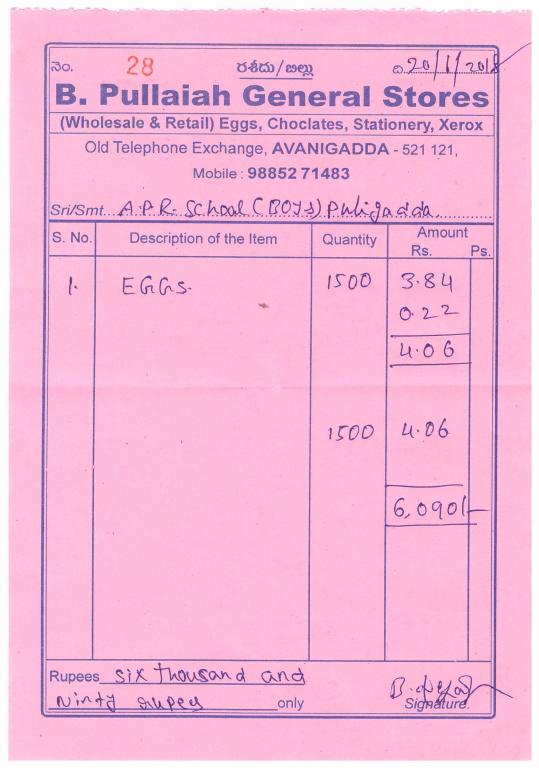 నెం. 28 రశీదు/బిల్లు ది. 20/1/2018
B. Pullaiah General Stores
(Wholesale & Retail) Eggs, Choclates, Stationery, Xerox
Old Telephone Exchange, AVANIGADDA - 521 121,
Mobile : 98852 71483
Sri/Smt. A.P.R. School (BOYS) Puligadda
S. No. Description of the Item Quantity Amount Rs. Ps.
1. EGGS. 1500 3.84
0.22
4.06
1500 4.06
6,090/-
Rupees six thousand and
ninty rupees only
Signature.